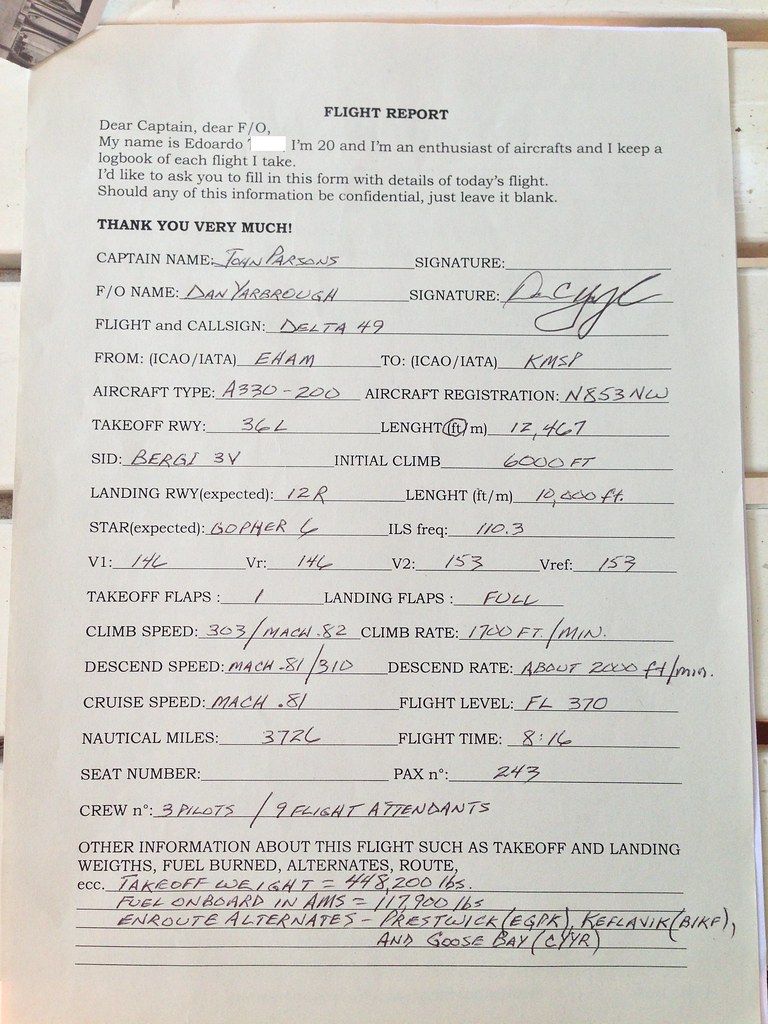 FLIGHT REPORT
Dear Captain, dear F/O,
My name is Edoardo I'm 20 and I'm an enthusiast of aircrafts and I keep a
logbook of each flight I take.
I'd like to ask you to fill in this form with details of today's flight.
Should any of this information be confidential, just leave it blank.
THANK YOU VERY MUCH!
CAPTAIN NAME: JOHN PARSONS SIGNATURE:
F/O NAME: DAN YARBROUGH SIGNATURE:
FLIGHT and CALLSIGN: DELTA 49
FROM: (ICAO/IATA) EHAM TO: (ICAO/IATA) KMSP
AIRCRAFT TYPE: A330-200 AIRCRAFT REGISTRATION: N853NW
TAKEOFF RWY: 36L LENGHT (ft/m) 12,467
SID: BERGI 3V INITIAL CLIMB 6000 FT
LANDING RWY(expected): 12R LENGHT (ft/m) 10,000 ft.
STAR(expected): GOPHER 6 ILS freq: 110.3
V1: 146 Vr: 146 V2: 153 Vref: 153
TAKEOFF FLAPS : 1 LANDING FLAPS : FULL
CLIMB SPEED: 303/MACH .82 CLIMB RATE: 1700 FT./MIN.
DESCEND SPEED: MACH .81/310 DESCEND RATE: ABOUT 2000 ft/min.
CRUISE SPEED: MACH .81 FLIGHT LEVEL: FL 370
NAUTICAL MILES: 3726 FLIGHT TIME: 8:16
SEAT NUMBER: PAX n°: 243
CREW n°: 3 PILOTS / 9 FLIGHT ATTENDANTS
OTHER INFORMATION ABOUT THIS FLIGHT SUCH AS TAKEOFF AND LANDING
WEIGTHS, FUEL BURNED, ALTERNATES, ROUTE,
ecc. TAKEOFF WEIGHT = 448,200 lbs.
FUEL ONBOARD IN AMS = 117,900 lbs
ENROUTE ALTERNATES - PRESTWICK (EGPK), KEFLAVIK (BIKF),
AND GOOSE BAY (CYYR)